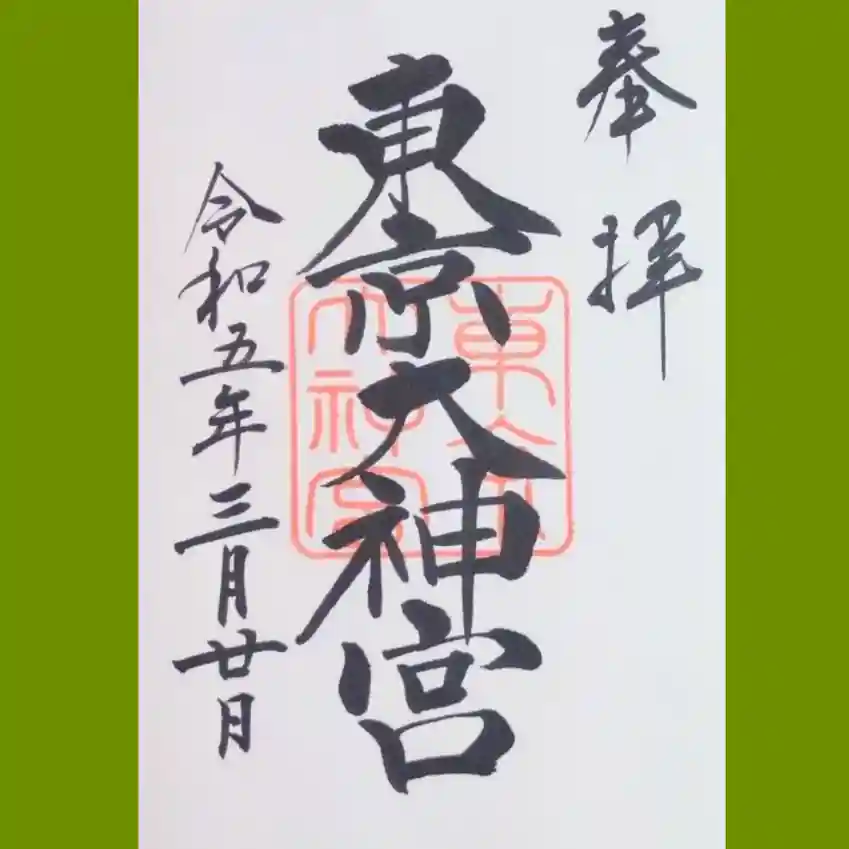 奉拝
東京大神宮
東京
大神宮
令和五年三月廿日